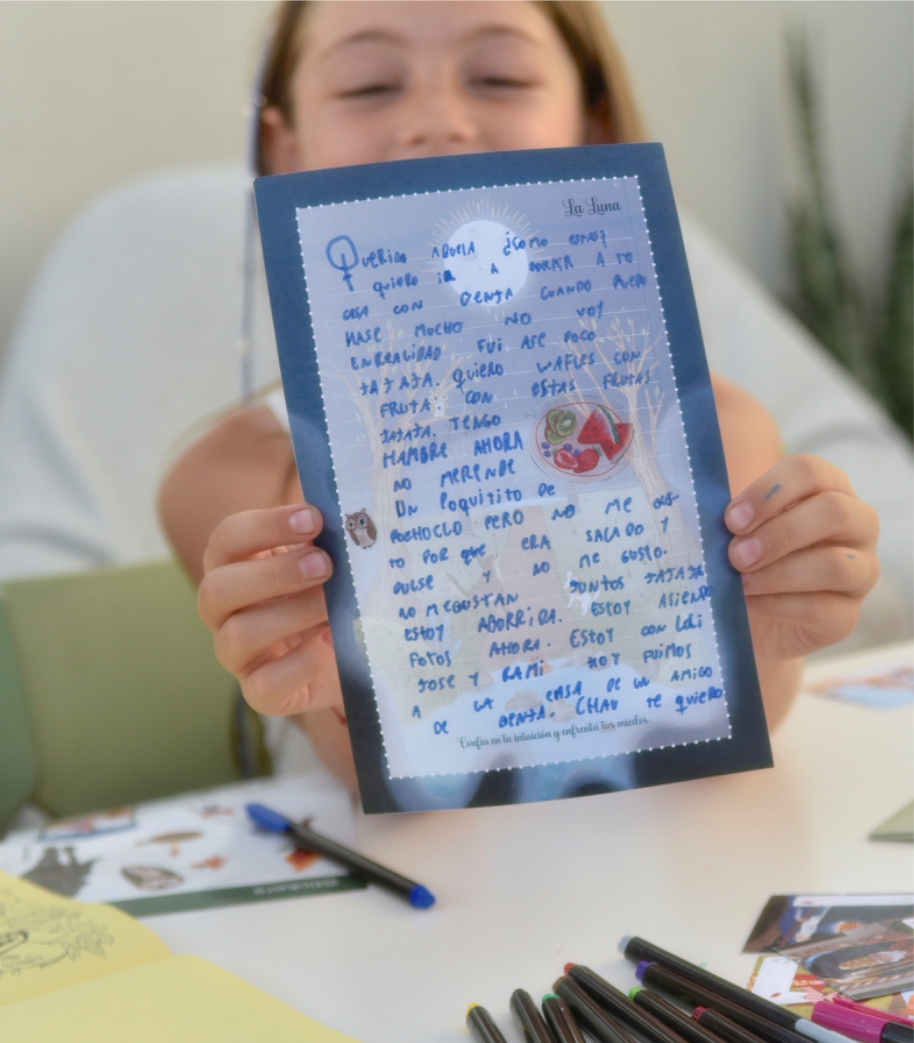 La Luna
Querida ABUELA ¿COMO ESTAS?
QUIERO IR A DORMIR A TU
CASA CON DENJA CUANDO PUEDO
HASE MUCHO NO VOY
EN REALIDAD FUI ASE POCO
JAJAJA. QUIERO WAFLES CON
FRUTA CON ESTAS FRUTAS
JAJAJA. TENGO
HAMBRE AHORA
NO MERENDE
UN POQUITITO DE
POCHOCLO PERO NO ME GUS-
TO POR QUE ERA SALADO Y
DULSE Y NO ME GUSTO.
NO ME GUSTAN JUNTOS JAJAJA
ESTOY ABORRIDA. ESTOY ASIENDO
FOTOS AHORA. ESTOY CON LOLI
JOSE Y RAMI HOY FUIMOS
A LA CASA DE UN AMIGO
DE BENJA. CHAU TE QUIERO
Confía en tu intuición y enfrentá tus miedos.